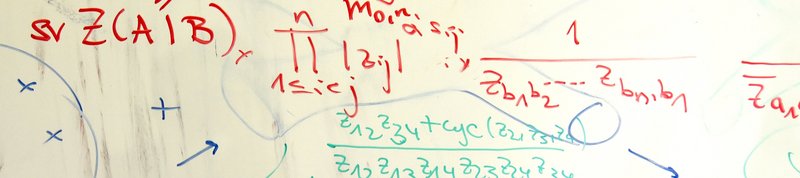 sv Z(A|B) × ∏ n 1≤i<j |z_ij| 1 / z_b1b2 ---- z_bn,b1 z̄_a1
z12 z34 + cyc(z2, z3, z4)
z12 z13 z14 z23 z24 z34